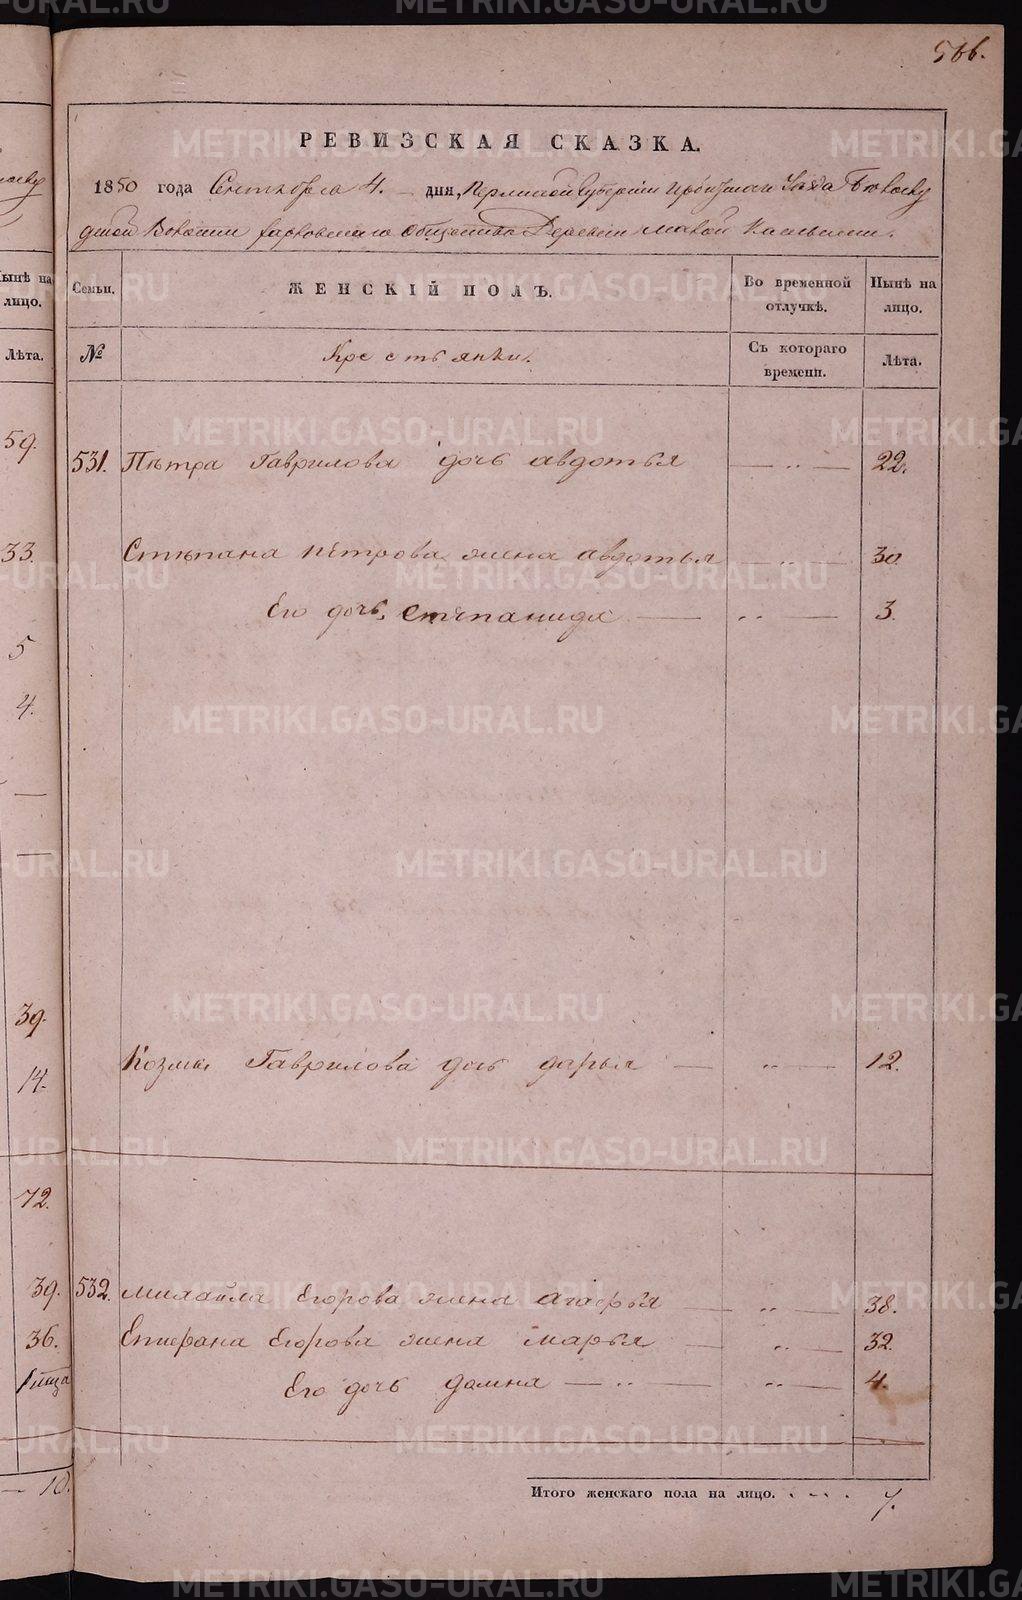 566.
РЕВИЗСКАЯ СКАЗКА.
1850 года Сентября 4. дня, Пермской губернии Ирбитскаго Уезда
дской Волости общества Деревни Малой
Ныне на лицо.
Семьи.
ЖЕНСКІЙ ПОЛЪ.
Во временной отлучкѣ.
Нынѣ на лицо.
Лѣта.
№
Крестьянки.
Съ котораго времени.
Лѣта.
59.
531. Пѣтра Гаврилова дочь авдотья — „ — 22.
33.
Стѣпана Пѣтрова жена авдотья — „ — 30
Его дочь Стѣпанида — „ — 3.
5
4.
39.
14.
Козмы Гаврилова дочь дарья — „ — 12.
72.
39.
532. Михайла Егорова жена Агафья — „ — 38.
36.
Епифана Егорова жена Марья — „ — 32.
Его дочь домна — „ — „ — 4.
— 10.
Итого женскаго пола на лицо. 7.
METRIKI.GASO-URAL.RU